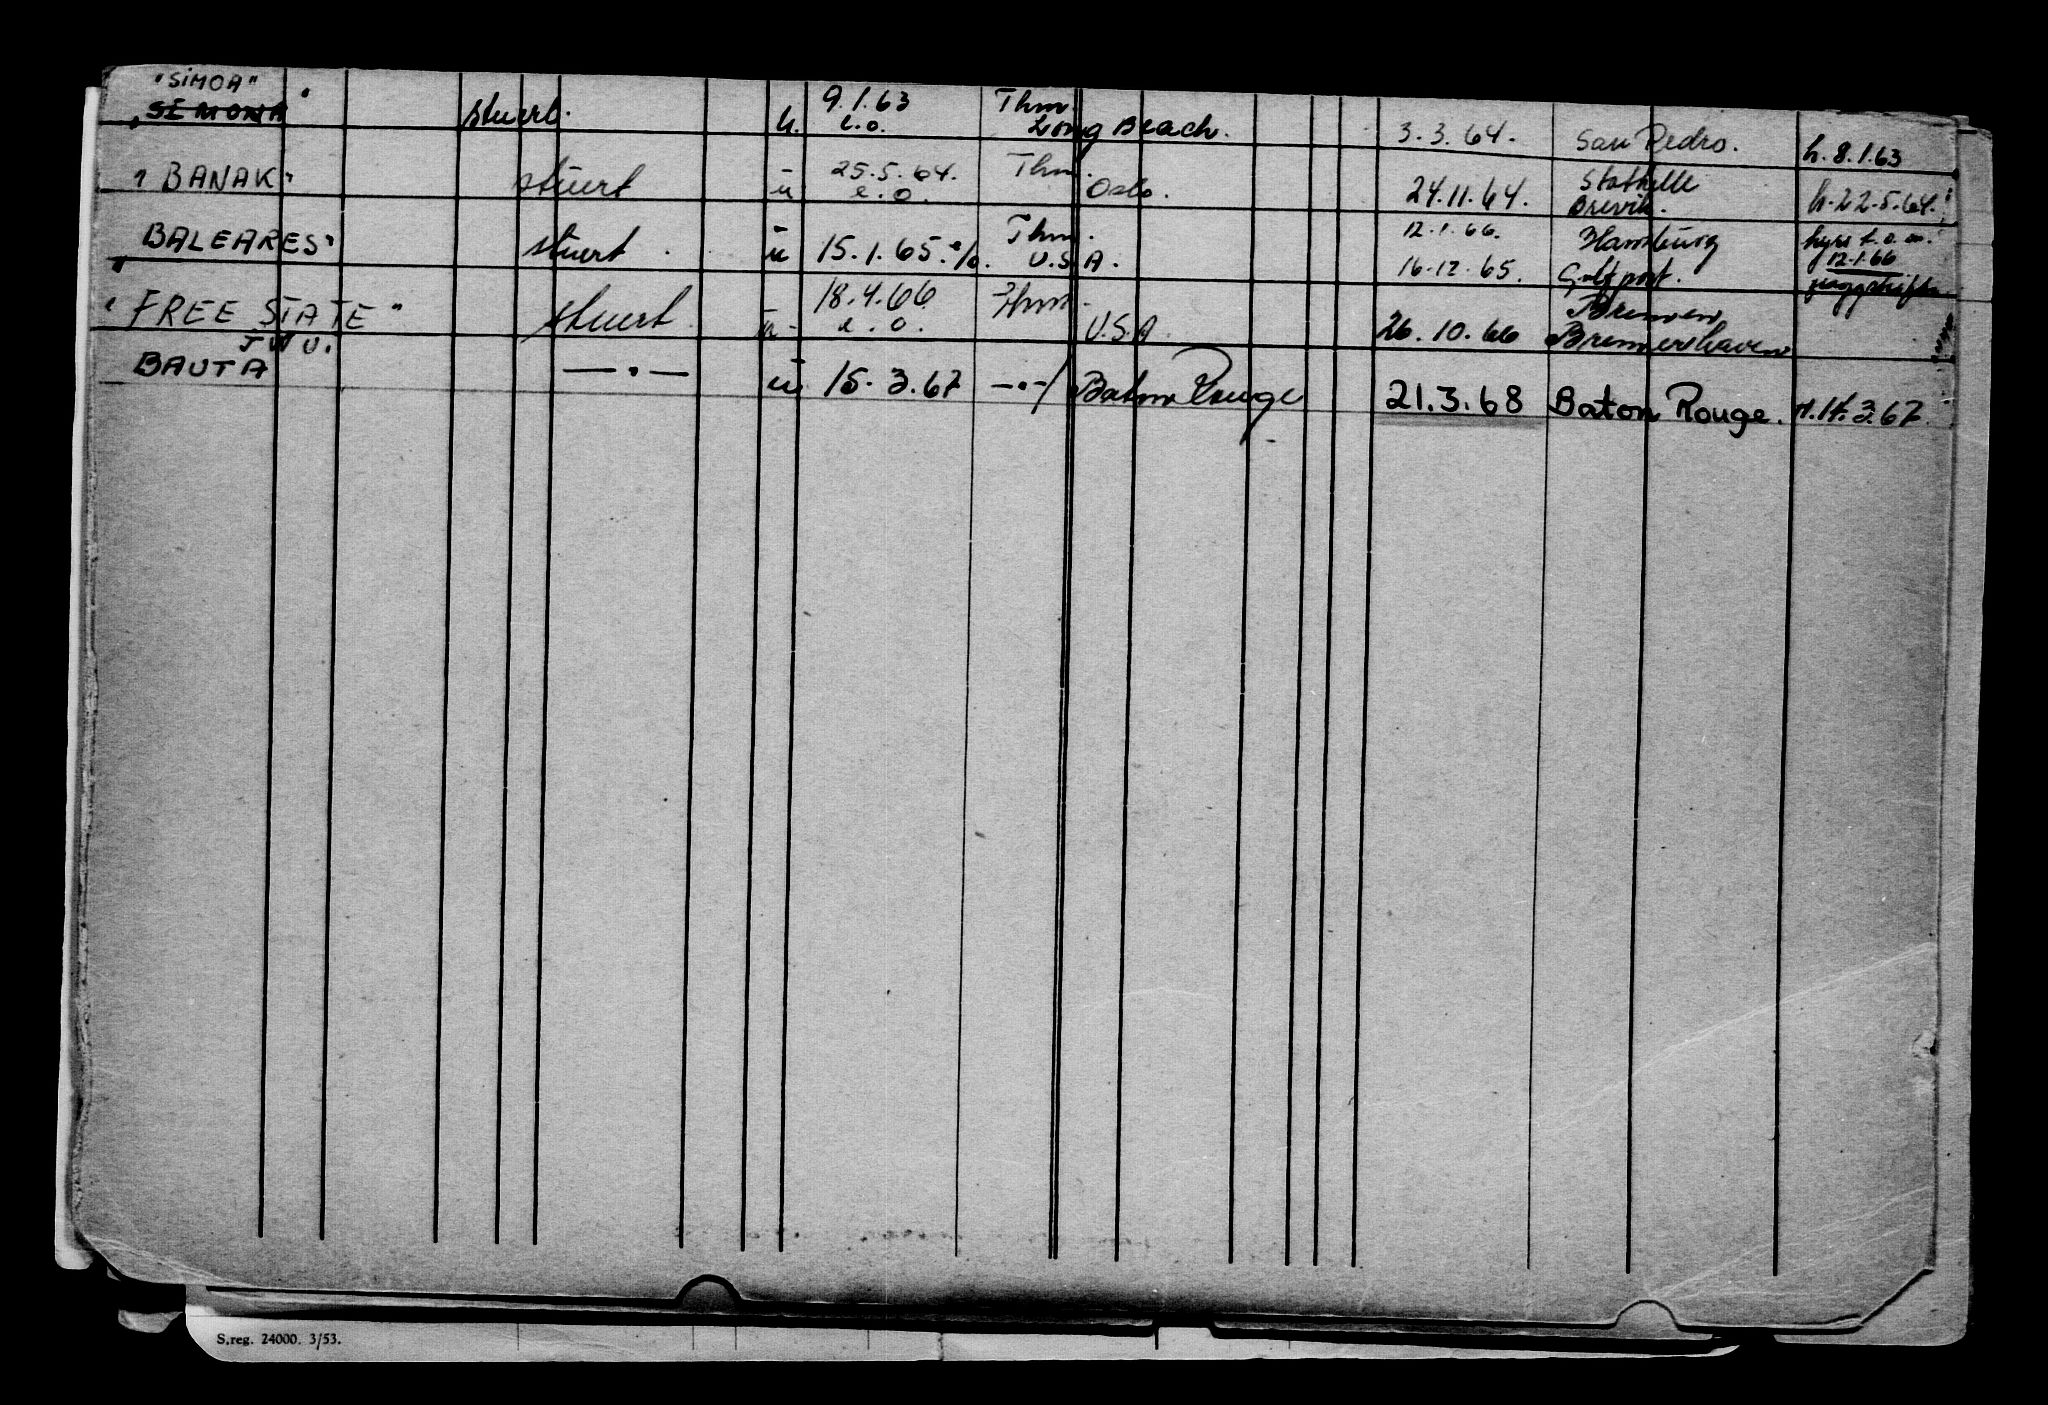 "SIMOA"
SIMONA stuert. u. 9.1.63 e.o. Thm. Long Beach. 3.3.64. San Pedro. h. 8.1.63
"BANAK" stuert u 25.5.64. e.o. Thm. Oslo. 24.11.64. Stathelle Brevik. h. 22.5.64.
"BALEARES" stuert. u 15.1.65. e/o. Thm. U.S.A. 12.1.66. Hamburg hyre t.o.m. 12.1.66
16.12.65. Gulfport.
"FREE STATE" stuert. u 18.4.66 e.o. Thm. U.S.A. 26.10.66 Bremen Bremerhaven
BAUTA —.— u 15.3.67 —.—/ Baton Rouge 21.3.68 Baton Rouge. 3.67.
S.reg. 24000. 3/53.